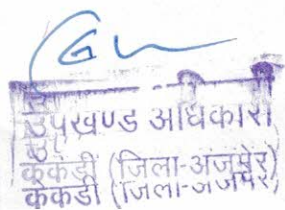 उपखण्ड अधिकारी
केकड़ी (जिला-अजमेर)
केकड़ी (जिला-अजमेर)